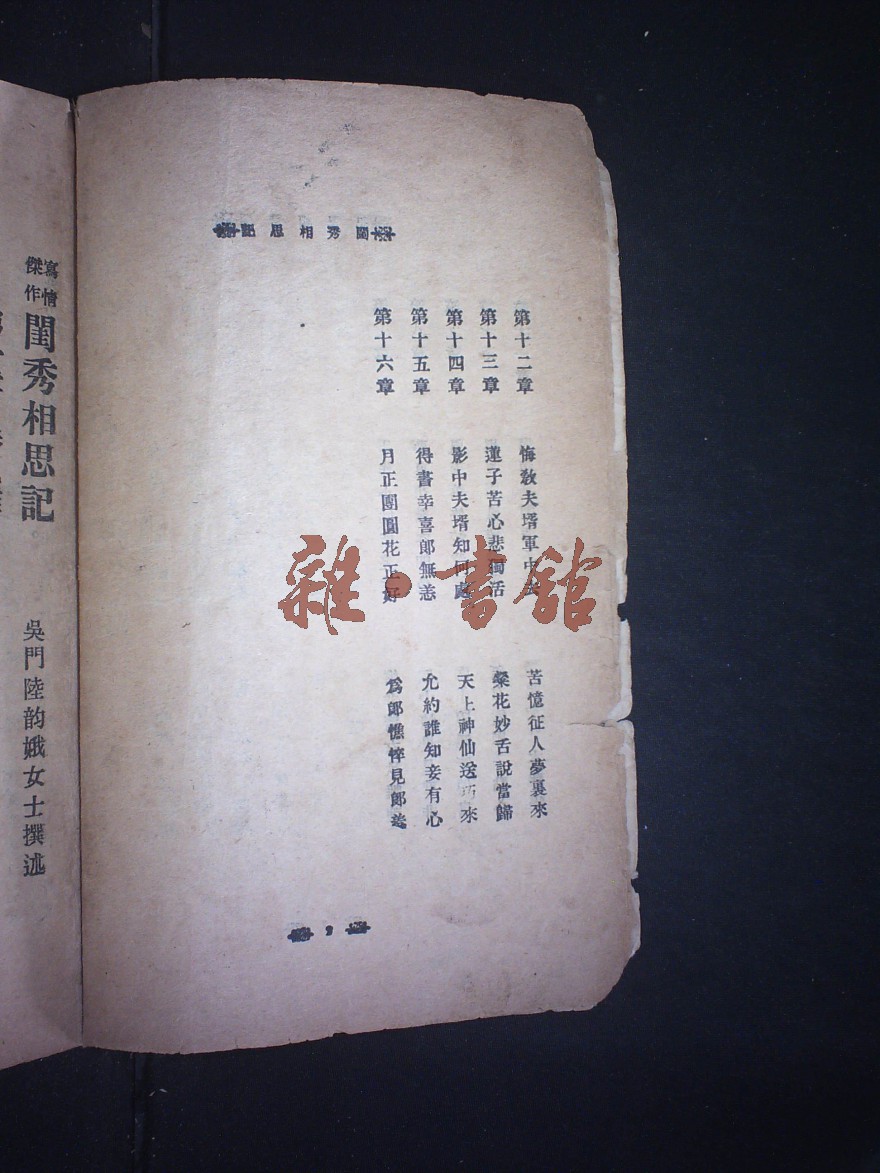 閨秀相思記
第十二章 悔敎夫壻軍中 苦憶征人夢裏來
第十三章 蓮子苦心悲獨活 粲花妙舌說當歸
第十四章 影中夫壻知何處 天上神仙送巧來
第十五章 得書幸喜郎無恙 允約誰知妾有心
第十六章 月正團圓花正好 爲郎憔悴見郎羞
2
寫情傑作
閨秀相思記
吳門陸韵娥女士撰述
雜·書館